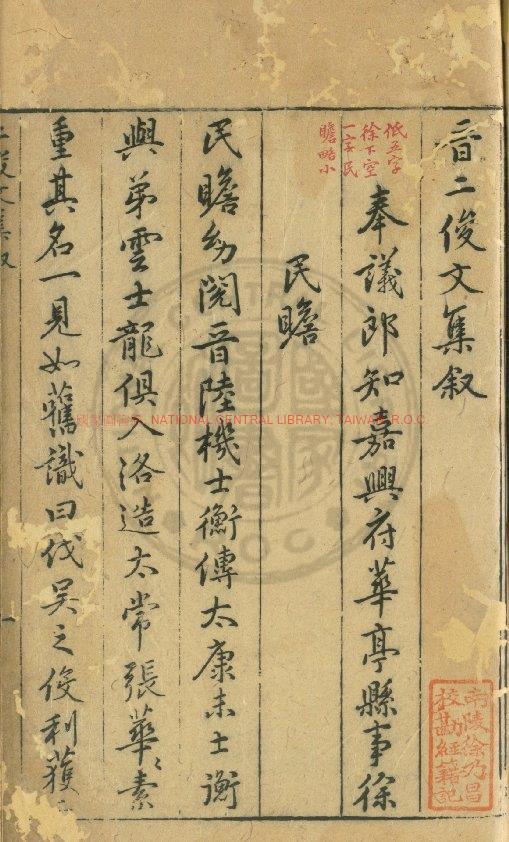 晉二俊文集叙
奉議郎知嘉興府華亭縣事徐
民瞻
民瞻幼閱晉陸機士衡傳太康末士衡
與弟雲士龍俱入洛造太常張華〻素
重其名一見如舊識曰伐吳之役利獲二
低五字
徐下空
一字民
瞻略小
二俊文集叙
一
南陵徐乃昌
校勘經籍記
國家圖書館 NATIONAL CENTRAL LIBRARY, TAIWAN, R.O.C